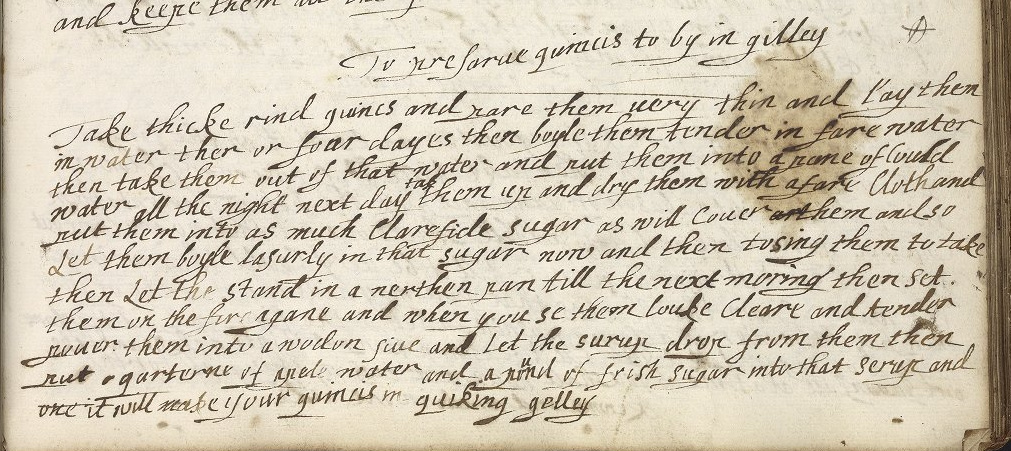 and keepe them all the
To presarue quincis to by in gilley
Take thicke rind quincs and pare them uery thin and Lay them
in water ther or four dayes then boyle them tender in fare water
then take them out of that water and put them into a pane of Could
water all the night next day take them up and dry them with a fare Cloth and
put them into as much Clarefide sugar as will Couer them and so
Let them boyle lasurly in that sugar now and then tosing them to take
then Let the stand in a nerthen pan till the next moring then set
them on the fire agane and when you se them louke Cleare and tender
pouer them into a wodon siue and Let the surup drop from them then
put a quarterne of apele water and a pond of frish sugar into that serup and
one it will make your quincis in quiking gelley